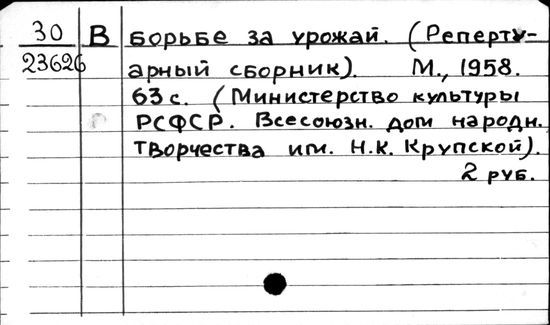 30 В борьбе за урожай. (Реперту-
23626 арный сборник). М., 1958.
63 с. (Министерство культуры
РСФСР. Всесоюзн. дом народн.
творчества им. Н.К. Крупской).
2 руб.